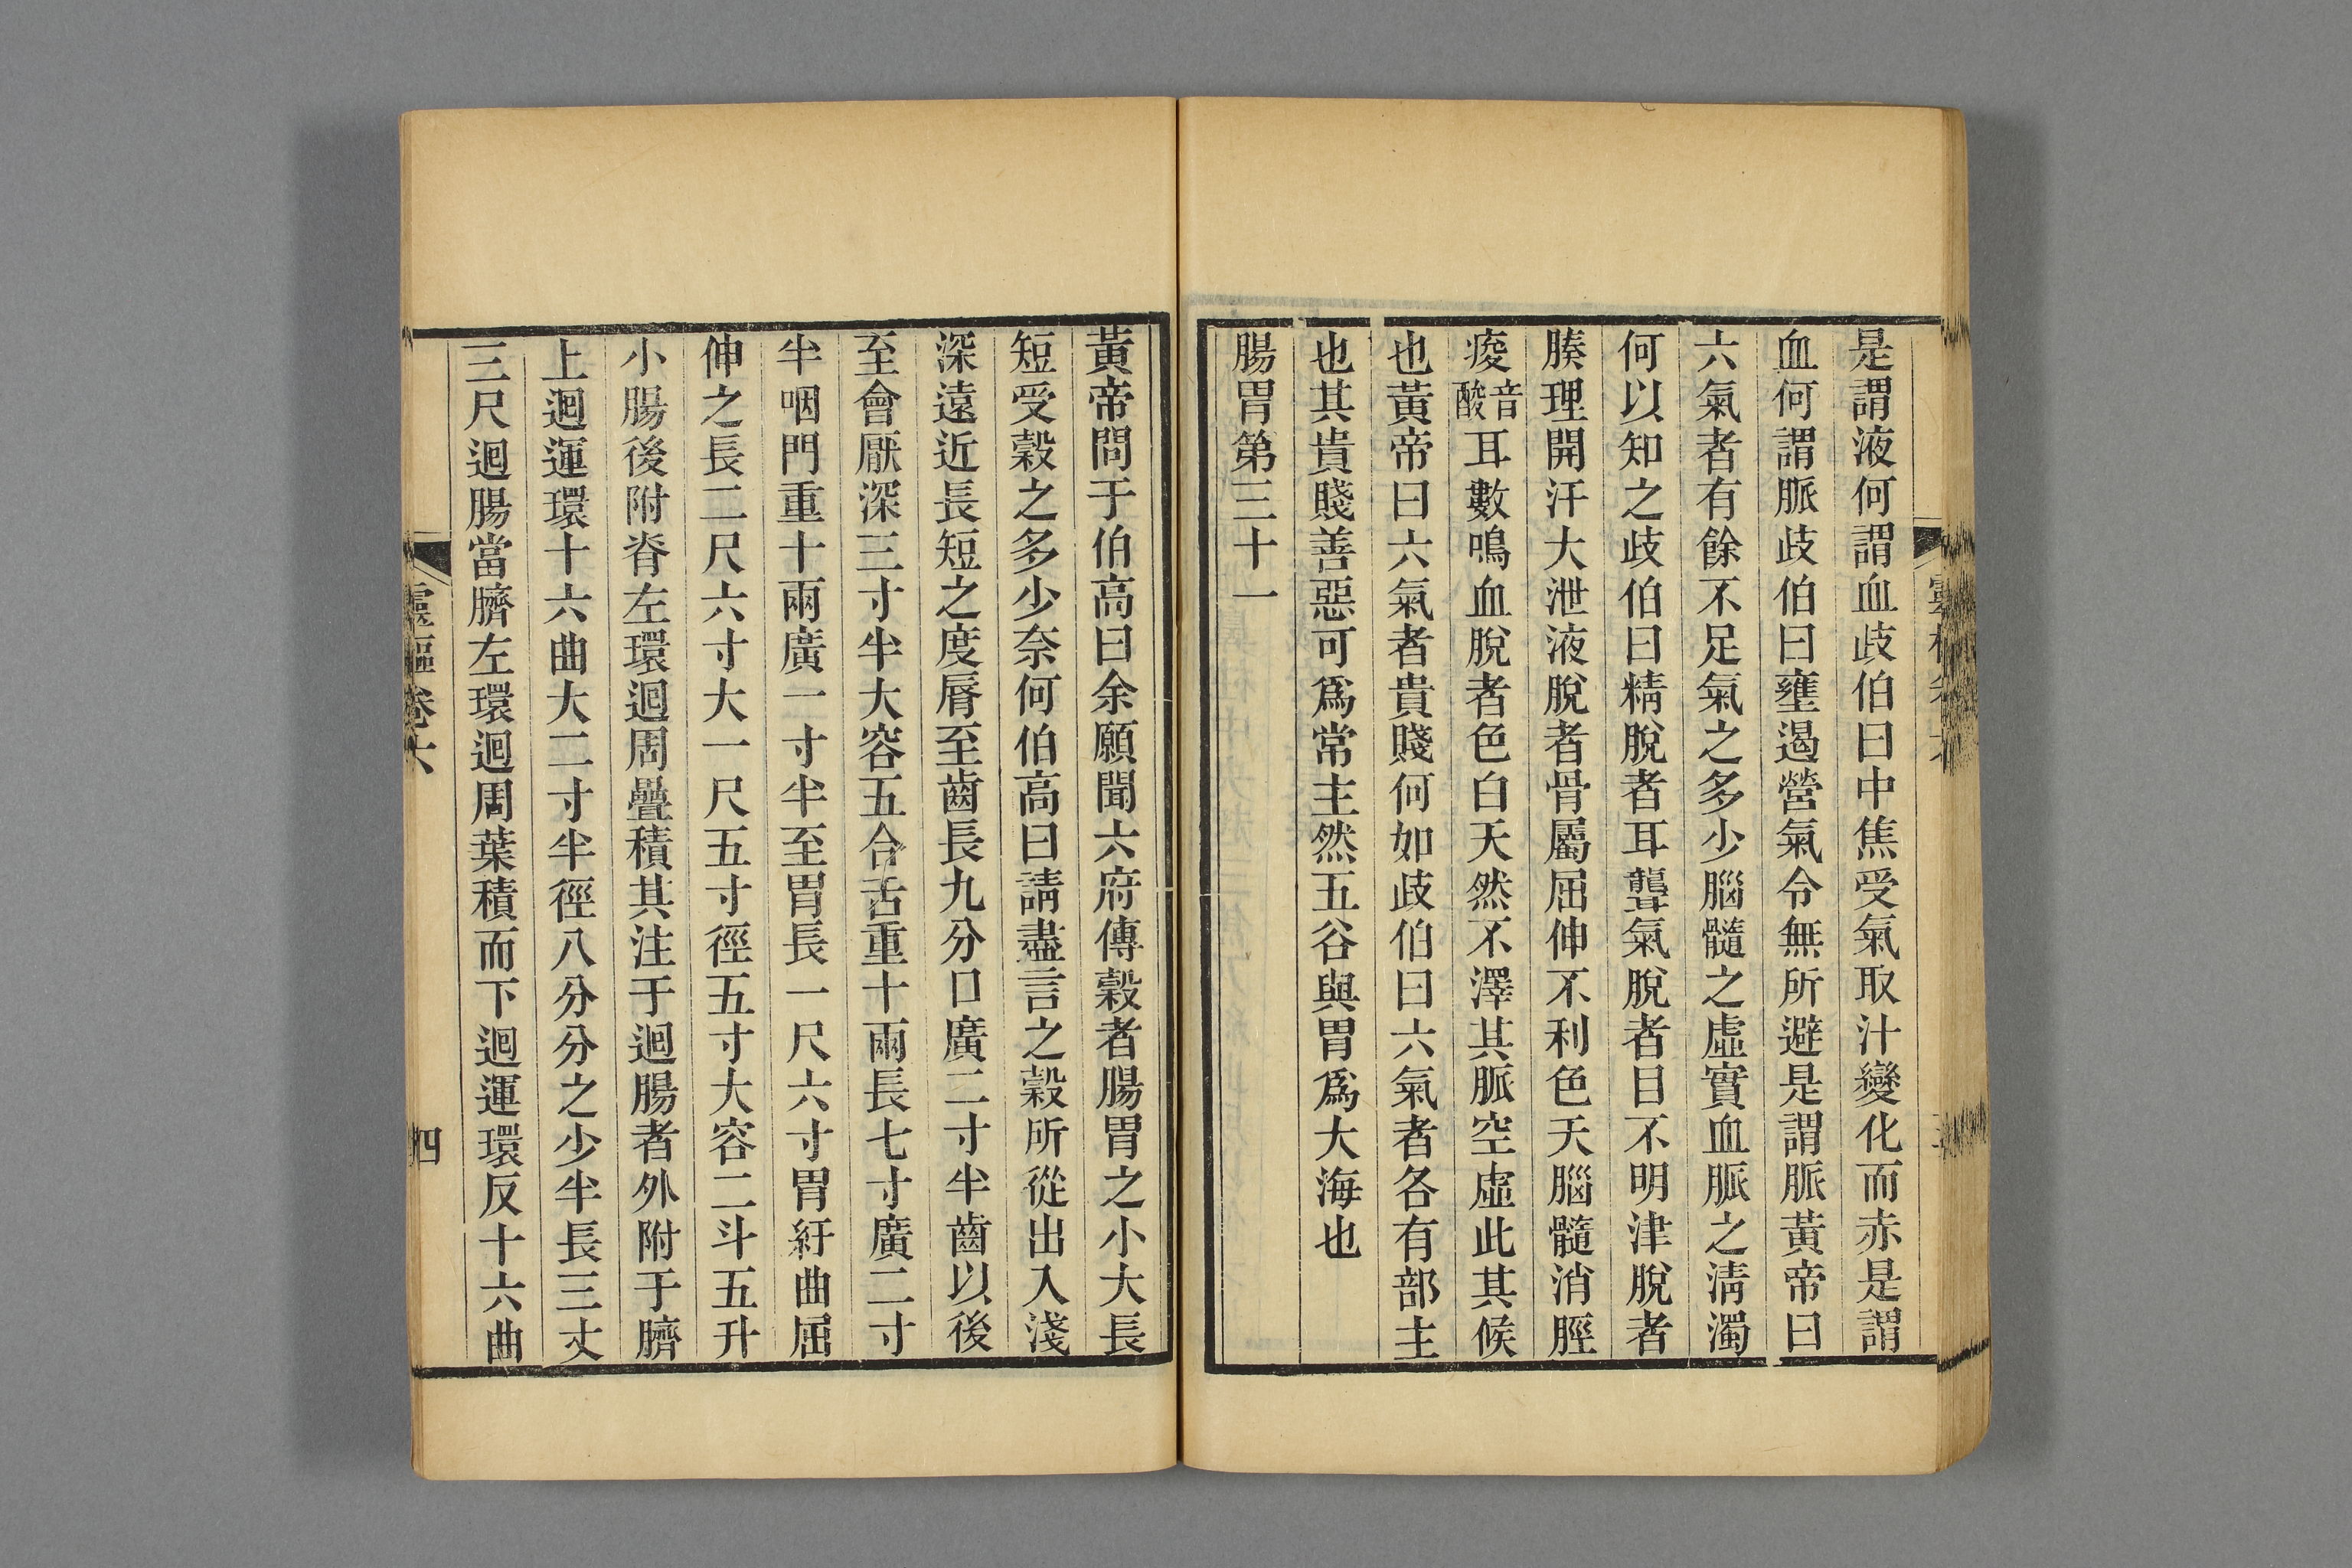 是謂液何謂血歧伯曰中焦受氣取汁變化而赤是謂
血何謂脈歧伯曰壅遏營氣令無所避是謂脈黃帝曰
六氣者有餘不足氣之多少腦髓之虛實血脈之淸濁
何以知之歧伯曰精脫者耳聾氣脫者目不明津脫者
腠理開汗大泄液脫者骨屬屈伸不利色夭腦髓消脛
痠音酸耳數鳴血脫者色白夭然不澤其脈空虛此其候
也黃帝曰六氣者貴賤何如歧伯曰六氣者各有部主
也其貴賤善惡可爲常主然五谷與胃爲大海也
腸胃第三十一
黃帝問于伯高曰余願聞六府傳穀者腸胃之小大長
短受穀之多少奈何伯高曰請盡言之穀所從出入淺
深遠近長短之度脣至齒長九分口廣二寸半齒以後
至會厭深三寸半大容五合舌重十兩長七寸廣二寸
半咽門重十兩廣一寸半至胃長一尺六寸胃紆曲屈
伸之長二尺六寸大一尺五寸徑五寸大容二斗五升
小腸後附脊左環迴周疊積其注于迴腸者外附于臍
上迴運環十六曲大二寸半徑八分分之少半長三丈
三尺迴腸當臍左環迴周葉積而下迴運環反十六曲
靈樞卷六
四